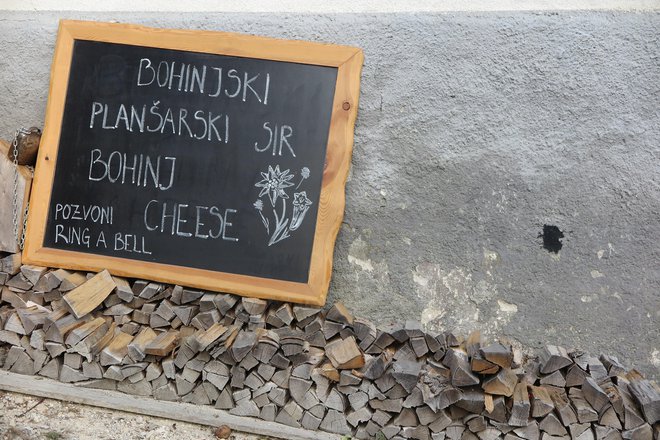 BOHINJSKI
PLANŠARSKI SIR
BOHINJ
CHEESE
POZVONI
RING A BELL